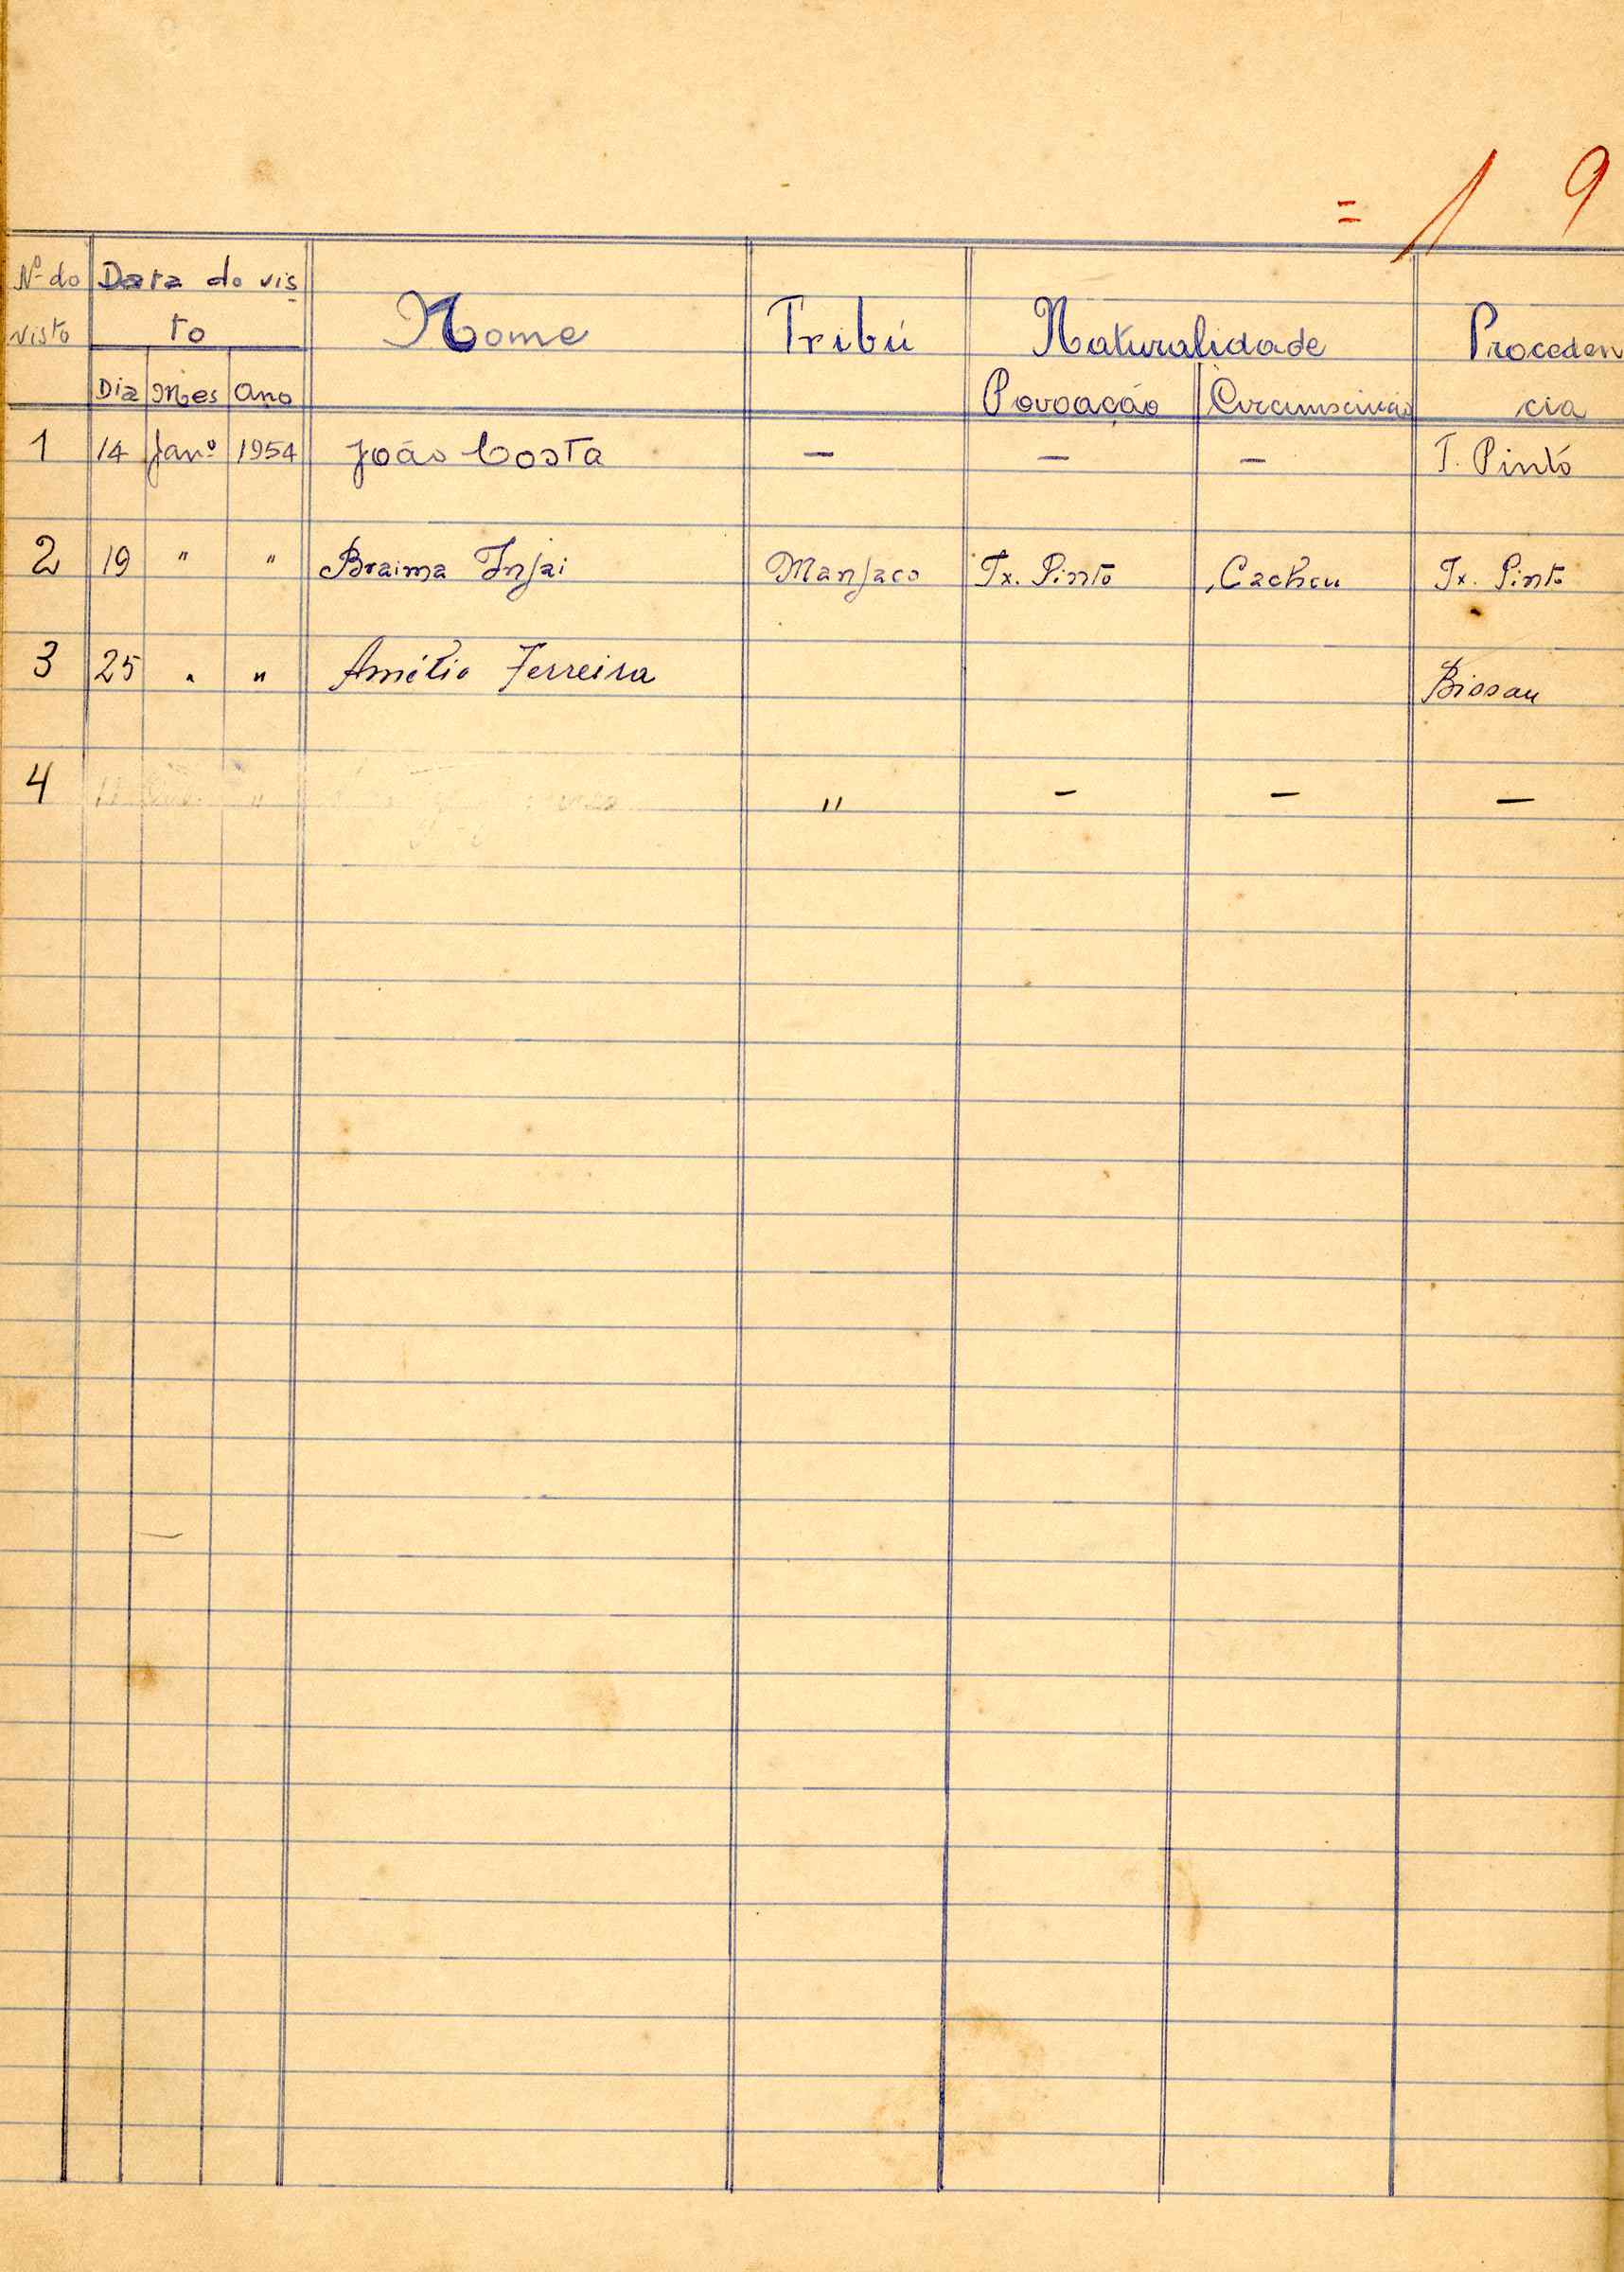 = 1 9
Nº do Data do vis
visto to Nome Tribú Naturalidade Proceden
Dia Mes Ano Povoação cia
1 14 Janº 1954 João Costa - - - T. Pinto
2 19 " " Braima Injai Manjaco Tx. Pinto Cacheu Tx. Pinto
3 25 " " Amélio Ferreira Bissau
4 " - - -